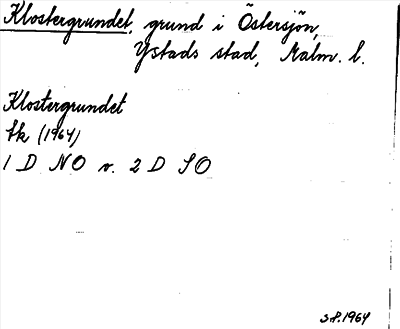 Klostergrundet, grund i Östersjön,
Ystads stad, Malm. l.
Klostergrundet
Sk (1964)
1 D NO v. 2 D SO
S.P. 1964